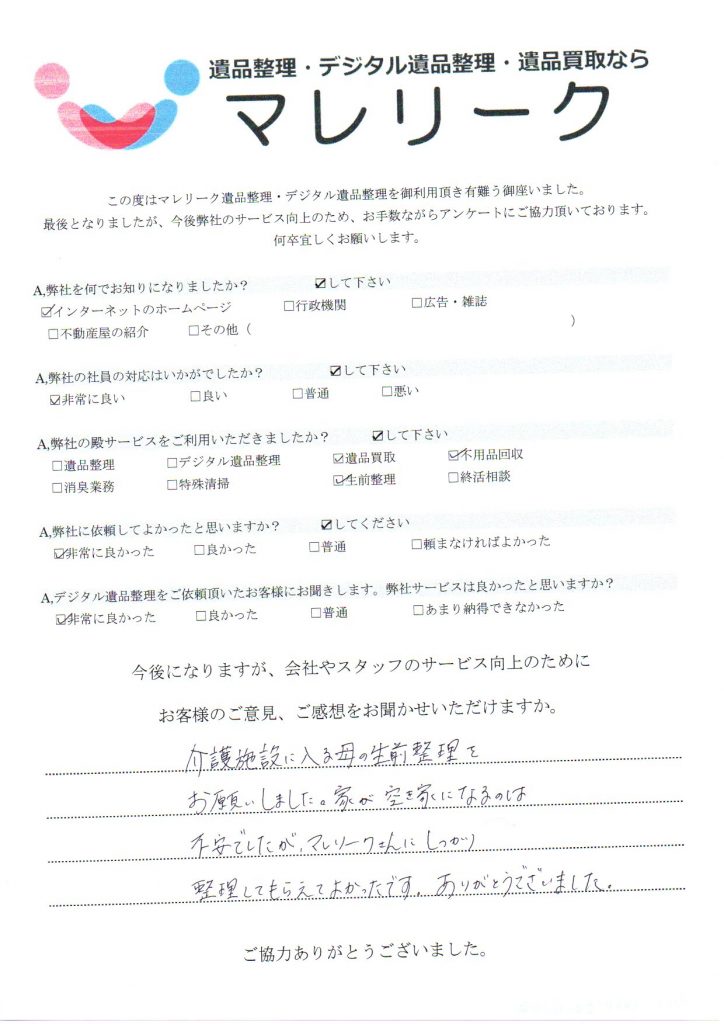 遺品整理・デジタル遺品整理・遺品買取なら
マレリーク
この度はマレリーク遺品整理・デジタル遺品整理を御利用頂き有難う御座いました。
最後となりましたが、今後弊社のサービス向上のため、お手数ながらアンケートにご協力頂いております。
何卒宜しくお願いします。
A,弊社を何でお知りになりましたか？ ☑して下さい
☑インターネットのホームページ □行政機関 □広告・雑誌
□不動産屋の紹介 □その他（ ）
A,弊社の社員の対応はいかがでしたか？ ☑して下さい
☑非常に良い □良い □普通 □悪い
A,弊社の殿サービスをご利用いただきましたか？ ☑して下さい
□遺品整理 □デジタル遺品整理 ☑遺品買取 ☑不用品回収
□消臭業務 □特殊清掃 ☑生前整理 □終活相談
A,弊社に依頼してよかったと思いますか？ ☑してください
☑非常に良かった □良かった □普通 □頼まなければよかった
A,デジタル遺品整理をご依頼頂いたお客様にお聞きします。弊社サービスは良かったと思いますか？
☑非常に良かった □良かった □普通 □あまり納得できなかった
今後になりますが、会社やスタッフのサービス向上のために
お客様のご意見、ご感想をお聞かせいただけますか。
介護施設に入る母の生前整理を
お願いしました。家が空き家になるのは
不安でしたが、マレリークさんにしっかり
整理してもらえてよかったです。ありがとうございました。
ご協力ありがとうございました。